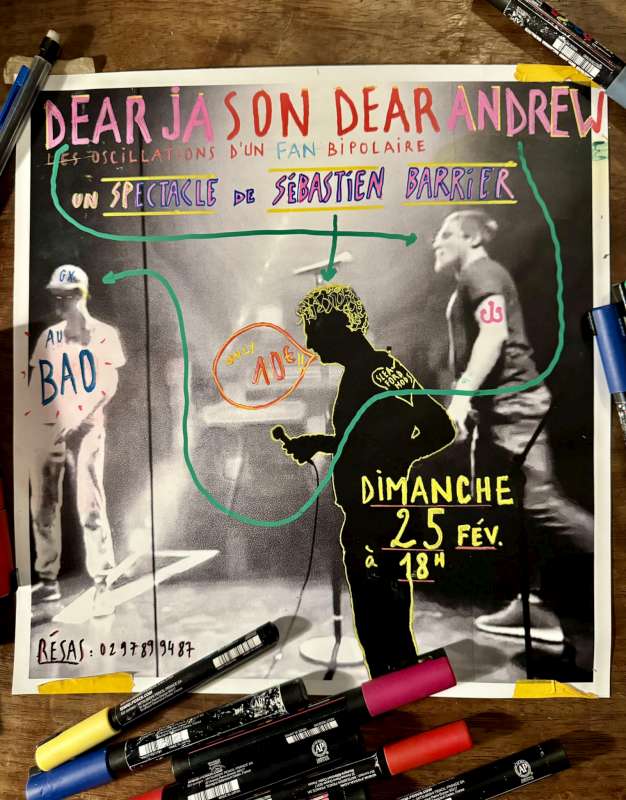 DEAR JASON DEAR ANDREW
LES OSCILLATIONS D'UN FAN BIPOLAIRE
UN SPECTACLE DE SÉBASTIEN BARRIER
GK
AU
BAO
ONLY
10€!!
SLEA
FORD
MODS
DIMANCHE
25 FÉV.
à 18H
RÉSAS : 02 97 89 94 87